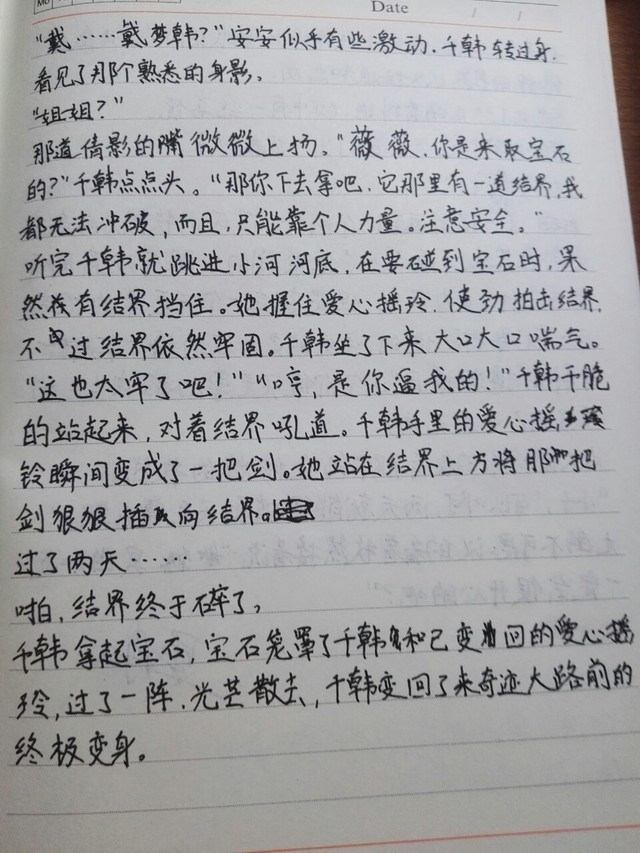 Date
"戴……戴梦韩?"安安似乎有些激动.千韩转过身,
看见了那个熟悉的身影。
"姐姐?"
那道倩影的嘴微微上扬。"薇薇,你是来取宝石
的?"千韩点点头。"那你下去拿吧,它那里有一道结界,我
都无法冲破,而且,只能靠个人力量。注意安全。"
听完千韩就跳进小河河底,在要碰到宝石时,果
然有结界挡住。她握住爱心摇玲,使劲拍击结界,
不过结界依然牢固。千韩坐了下来大口大口喘气。
"这也太牢了吧!""哼,是你逼我的!"千韩干脆
的站起来,对着结界吼道。千韩手里的爱心摇
铃瞬间变成了一把剑。她站在结界上方将那把
剑狠狠插向结界。
过了两天……
啪,结界终于碎了,
千韩拿起宝石,宝石笼罩了千韩和已变回的爱心摇
玲,过了一阵.光芒散去,千韩变回了来奇迹大路前的
终极变身。